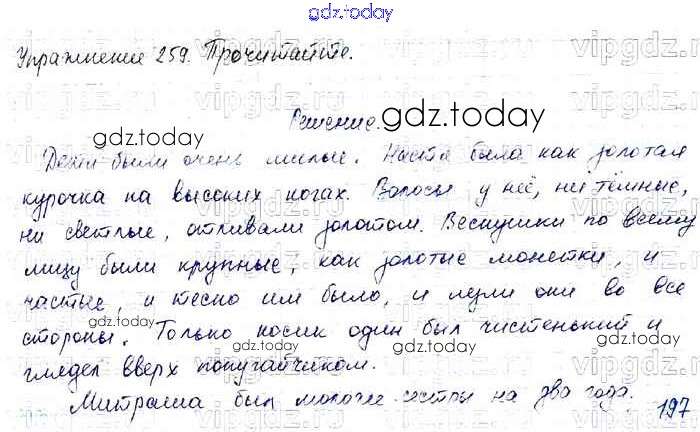 gdz.today
Упражнение 259. Прочитайте.
Решение.
gdz.today
gdz.today
Дети были очень милые. Настя была как золотая
курочка на высоких ногах. Волосы у неё, ни тёмные,
ни светлые, отливали золотом. Веснушки по всему
лицу были крупные, как золотые монетки, и
частые, и тесно им было, и лезли они во все
стороны. Только носик один был чистенький и
gdz.today
gdz.today
глядел вверх попугайчиком.
Митраша был моложе сестры на два года.
197